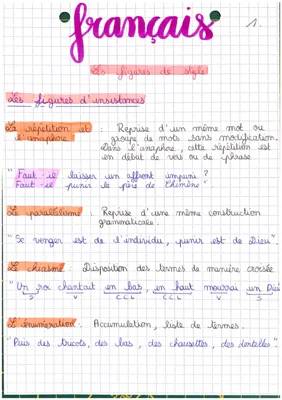 français
1.
Les figures de style
Les figures d'insistances
La répétition et : Reprise d'un même mot ou
l'anaphore groupe de mots sans modification.
Dans l'anaphore, cette répétition est
en début de vers ou de phrase
"Faut-il laisser un affront impuni ?
Faut-il punir le père de Chimène"
Le parallélisme : Reprise d'une même construction
grammaticale.
"Se venger est de l'individu, punir est de Dieu".
Le chiasme : Disposition des termes de manière croisée
"Un roi chantait en bas, en haut mourrait un Dieu
S V C.C.L C.C.L V S
L'énumération : Accumulation, liste de termes.
"Puis des tricots, des bas, des chaussettes, des dentelles".